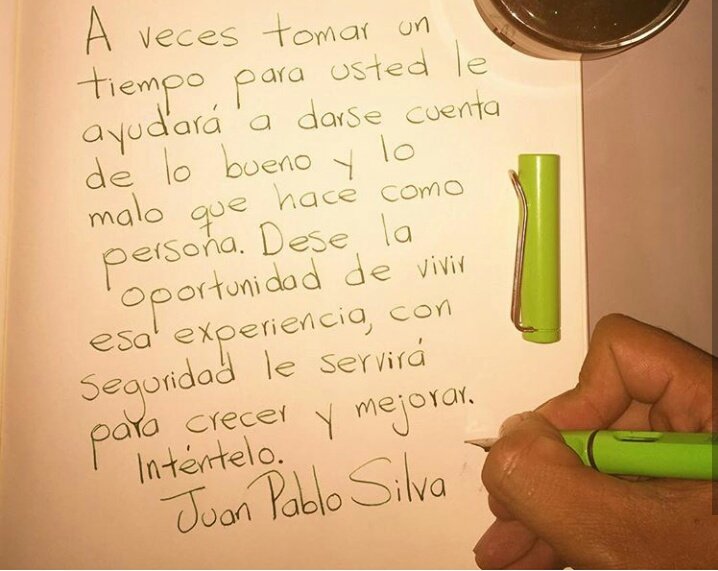 A veces tomar un
tiempo para usted le
ayudará a darse cuenta
de lo bueno y lo
malo que hace como
persona. Dese la
oportunidad de vivir
esa experiencia, con
seguridad le servirá
para crecer y mejorar.
Inténtelo.
Juan Pablo Silva